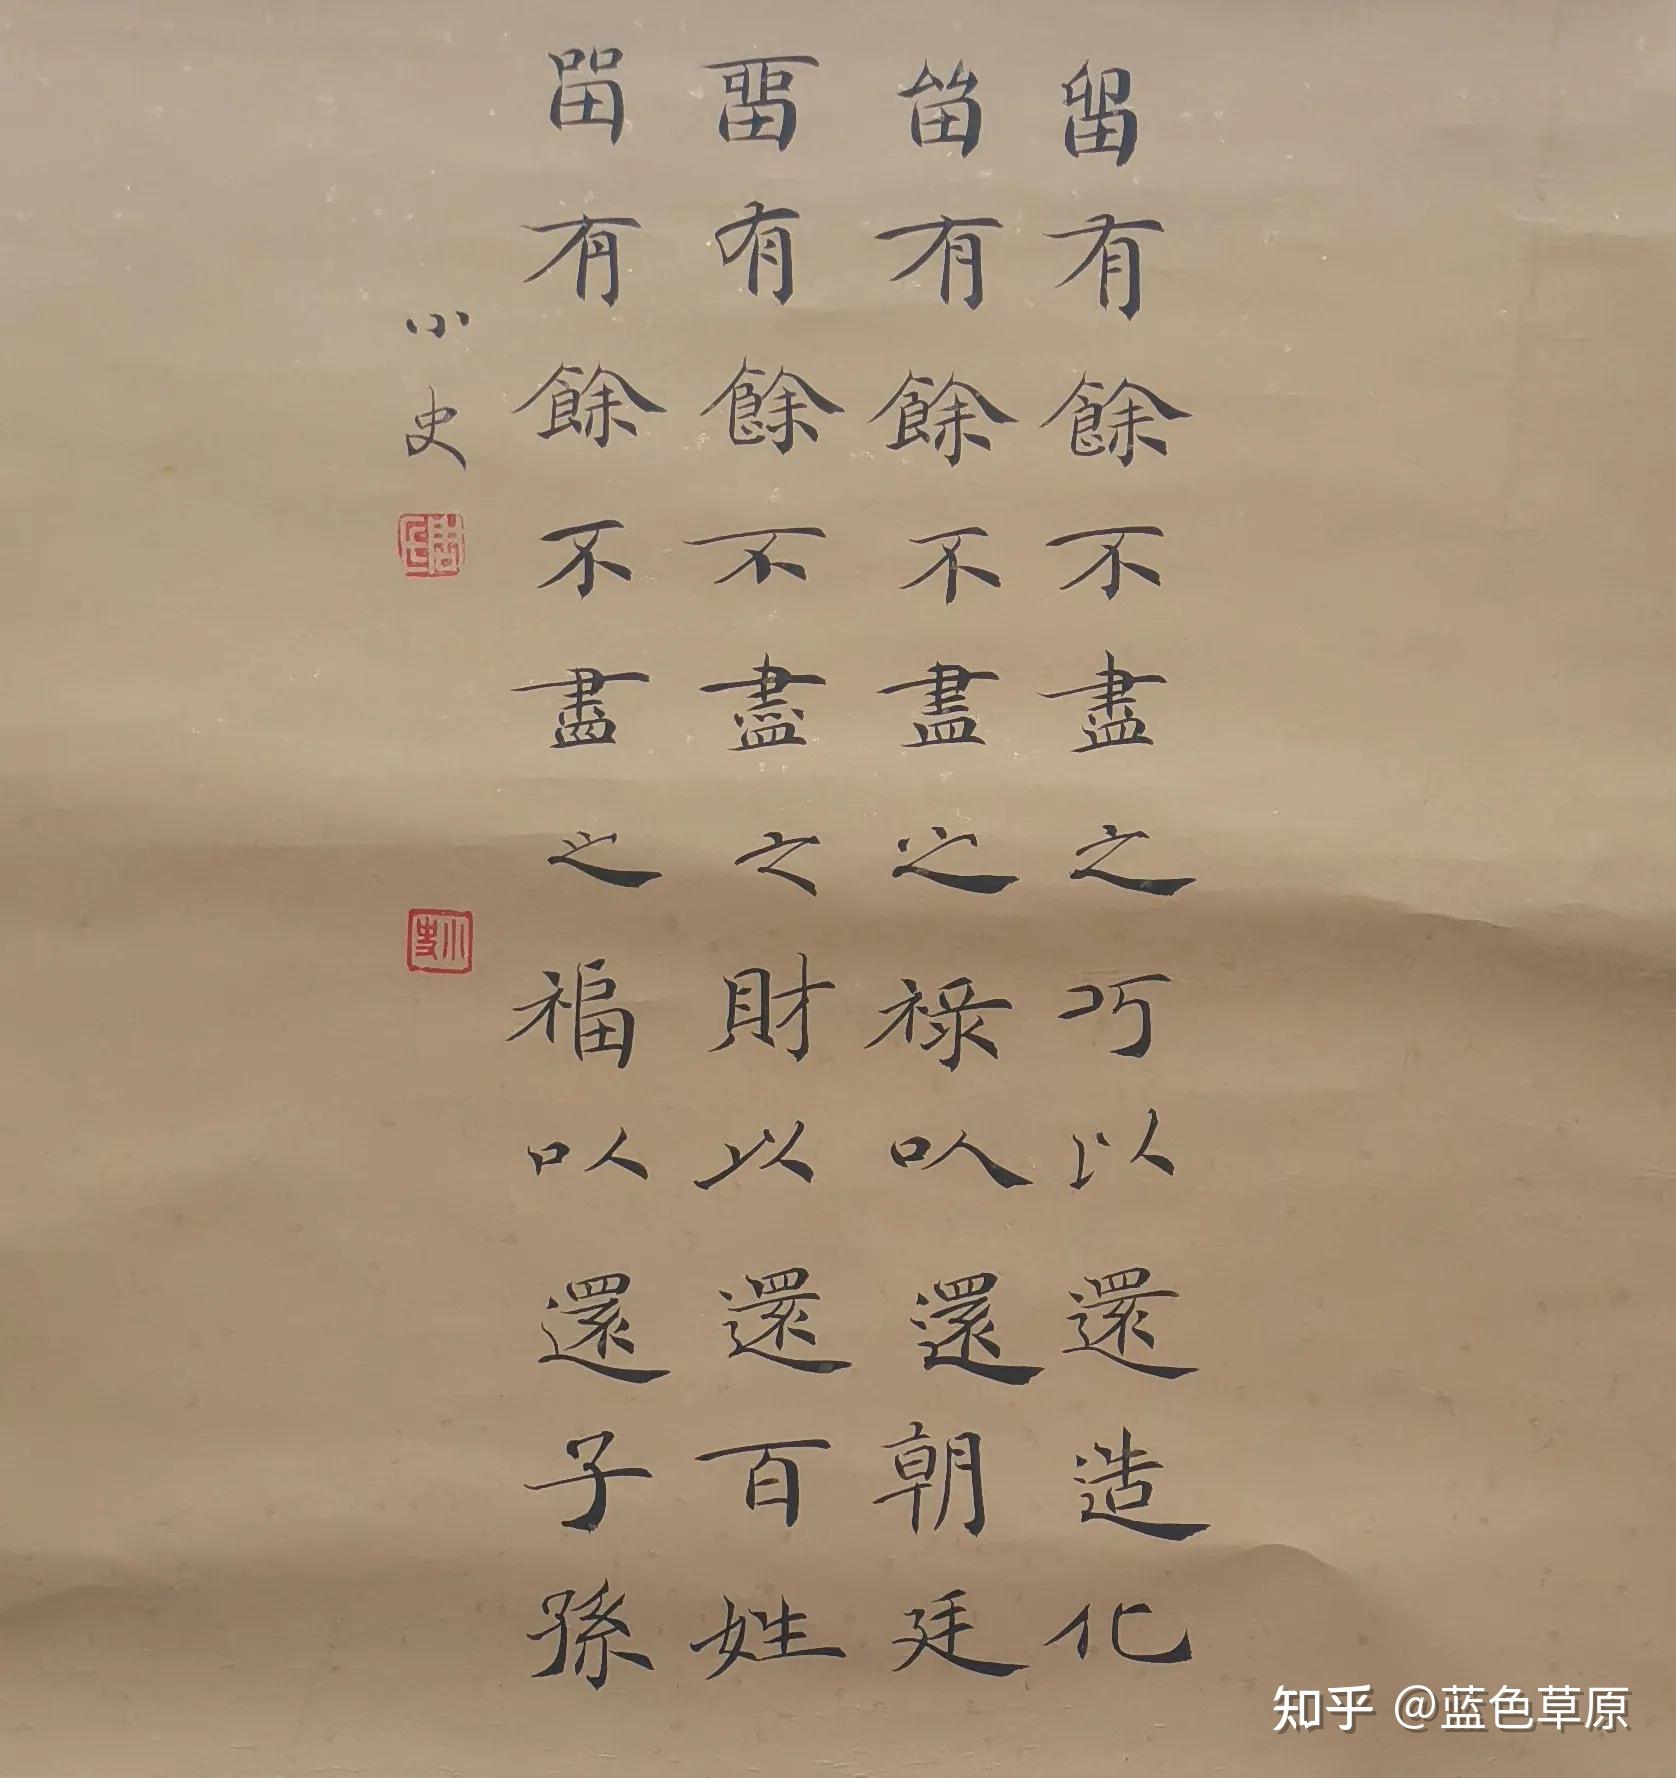 留有餘不盡之巧以還造化
留有餘不盡之祿以還朝廷
留有餘不盡之財以還百姓
留有餘不盡之福以還子孫
小史
小史
知乎 @蓝色草原